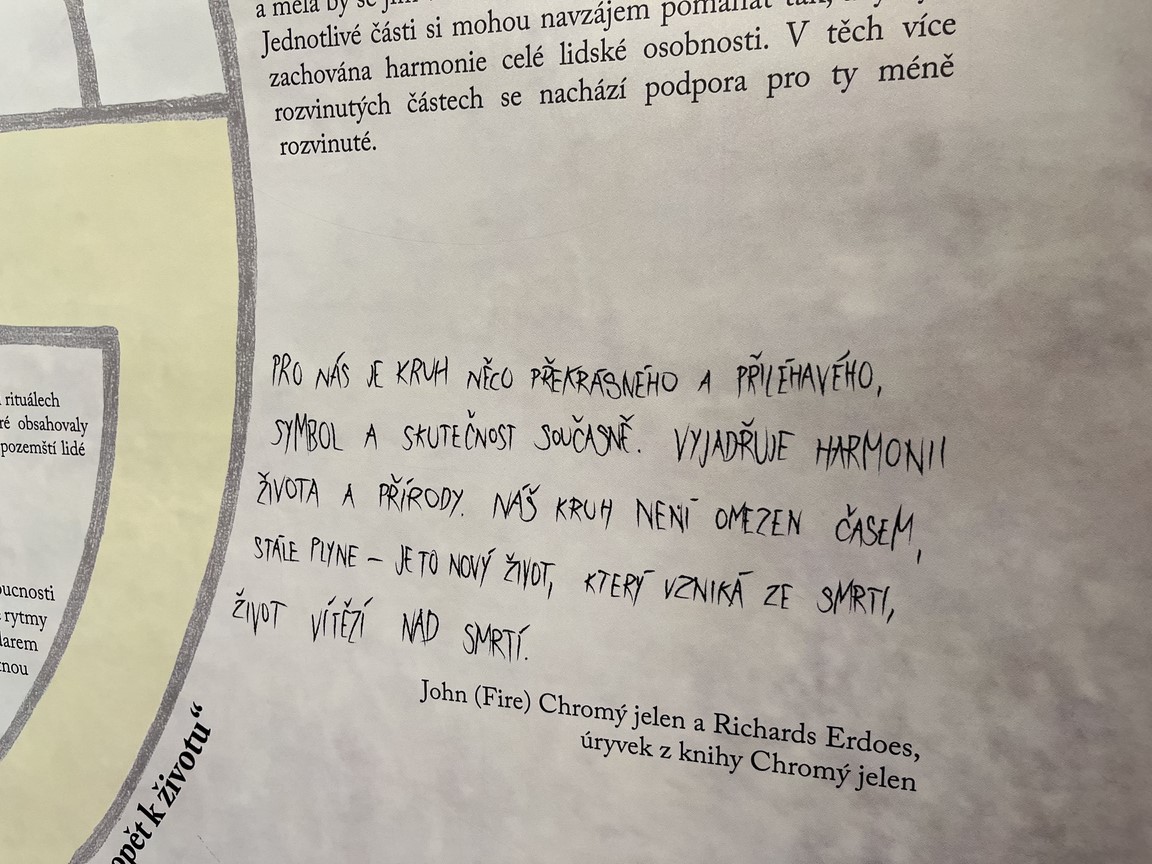 a měla by se
Jednotlivé části si mohou navzájem pomáhat tak,
zachována harmonie celé lidské osobnosti. V těch více
rozvinutých částech se nachází podpora pro ty méně
rozvinuté.
rituálech
obsahovaly
pozemští lidé
rytmy
PRO NÁS JE KRUH NĚCO PŘEKRÁSNÉHO A PŘILÉHAVÉHO,
SYMBOL A SKUTEČNOST SOUČASNĚ. VYJADŘUJE HARMONII
ŽIVOTA A PŘÍRODY. NÁŠ KRUH NENÍ OMEZEN ČASEM,
STÁLE PLYNE – JE TO NOVÝ ŽIVOT, KTERÝ VZNIKÁ ZE SMRTI,
ŽIVOT VÍTĚZÍ NAD SMRTÍ.
John (Fire) Chromý jelen a Richards Erdoes,
úryvek z knihy Chromý jelen
opět k životu“